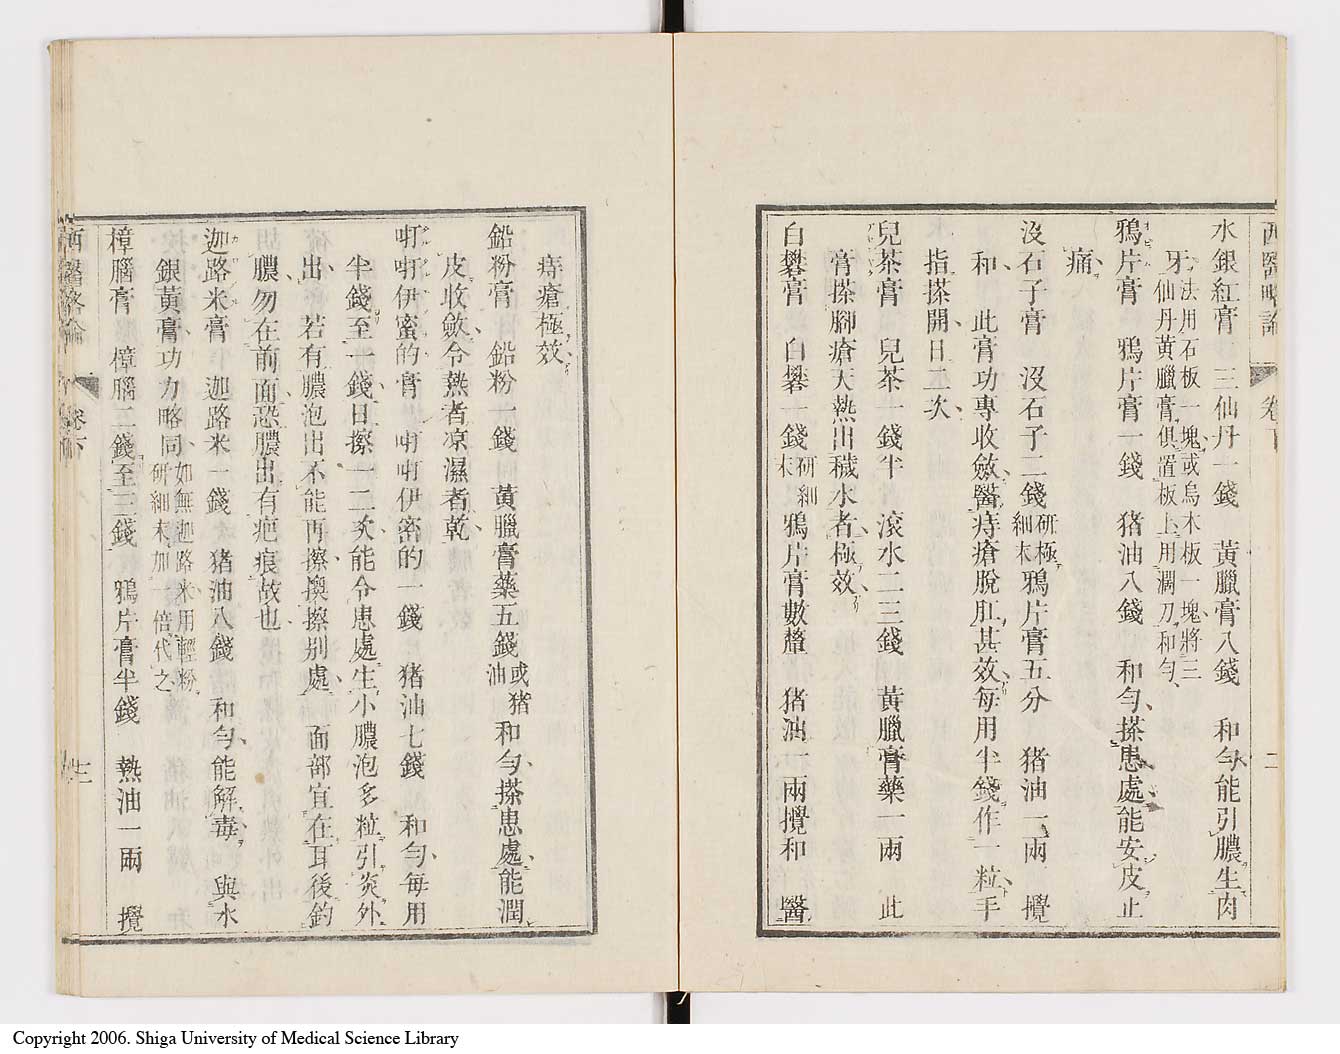 西醫略論 卷下 二
水銀紅膏 三仙丹一錢 黃臘膏八錢 和勻能引膿生肉
法用石板一塊或烏木板一塊將三
仙丹黃臘膏俱置板上用濶刀和勻
鴉片膏 鴉片膏一錢 猪油八錢 和勻搽患處能安皮止
痛
沒石子膏 沒石子二錢研極細末 鴉片膏五分 猪油一兩 攪
和 此膏功專收斂醫痔瘡脫肛甚效每用半錢作一粒手
指搽開日二次
兒茶膏 兒茶一錢半 滾水二三錢 黃臘膏藥一兩 此
膏搽腳瘡天熱出穢水者極效
白礬膏 白礬一錢研細末 鴉片膏數釐 猪油一兩攪和 醫
痔瘡極效
鉛粉膏 鉛粉一錢 黃臘膏藥五錢或猪油 和勻搽患處能潤
皮收斂令熱者凉濕者乾
𠯈𠯈伊蜜的膏 𠯈𠯈伊密的一錢 猪油七錢 和勻每用
半錢至一錢日擦一二次能令患處生小膿泡多粒引炎外
出 若有膿泡出不能再擦換擦別處 面部宜在耳後釣
膿勿在前面恐膿出有疤痕故也
迦路米膏 迦路米一錢 猪油八錢 和勻能解毒 與水
銀黃膏功力略同如無迦路米用輕粉
研細末加一倍代之
樟腦膏 樟腦二錢至三錢 鴉片膏半錢 熱油一兩 攪
西醫略論 卷下
Copyright 2006. Shiga University of Medical Science Library